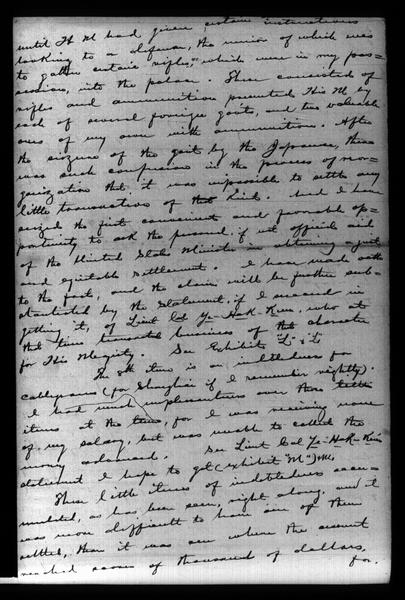 until H M had given certain instructions
looking to a defense, the minor of which was
to gather certain rifles, which were in my pos-
session, into the palace. These consisted of
rifles and ammunition presented His M by
each of several foreign gov'ts, and two valuable
ones of my own with ammunition. After
the seizure of the gov't by the Japanese, there
was such confusion in the process of reor-
ganization that it was impossible to settle any
little transactions of that kind. And I have
seized the first convenient and favorable op-
portunity to ask the personal, if not official aid
of the United States Minister in obtaining a just
and equitable settlement. I have made oath
to the fact, and the claim will be further sub-
stantiated by the statement, if I succeed in
getting it, of Lieut Col Ye-Hak-Kiun, who at
that time transacted business of that character
for His Majesty. See Exhibits "L" & "L"
The 8th item is an indebtedness for
cablegrams (for Shanghai if I remember rightly).
I had much unpleasantness over these little
items at the time, for I was receiving none
of my salary, but was unable to collect the
money advanced. See Lieut Col Ye-Hak-Kiun
statement I hope to get (exhibit "M")
These little items of indebtedness accu-
mulated, as has been seen, right along, and it
was more difficult to have one of them
settled, than it was one where the amount
reached scores of thousands of dollars,
for.